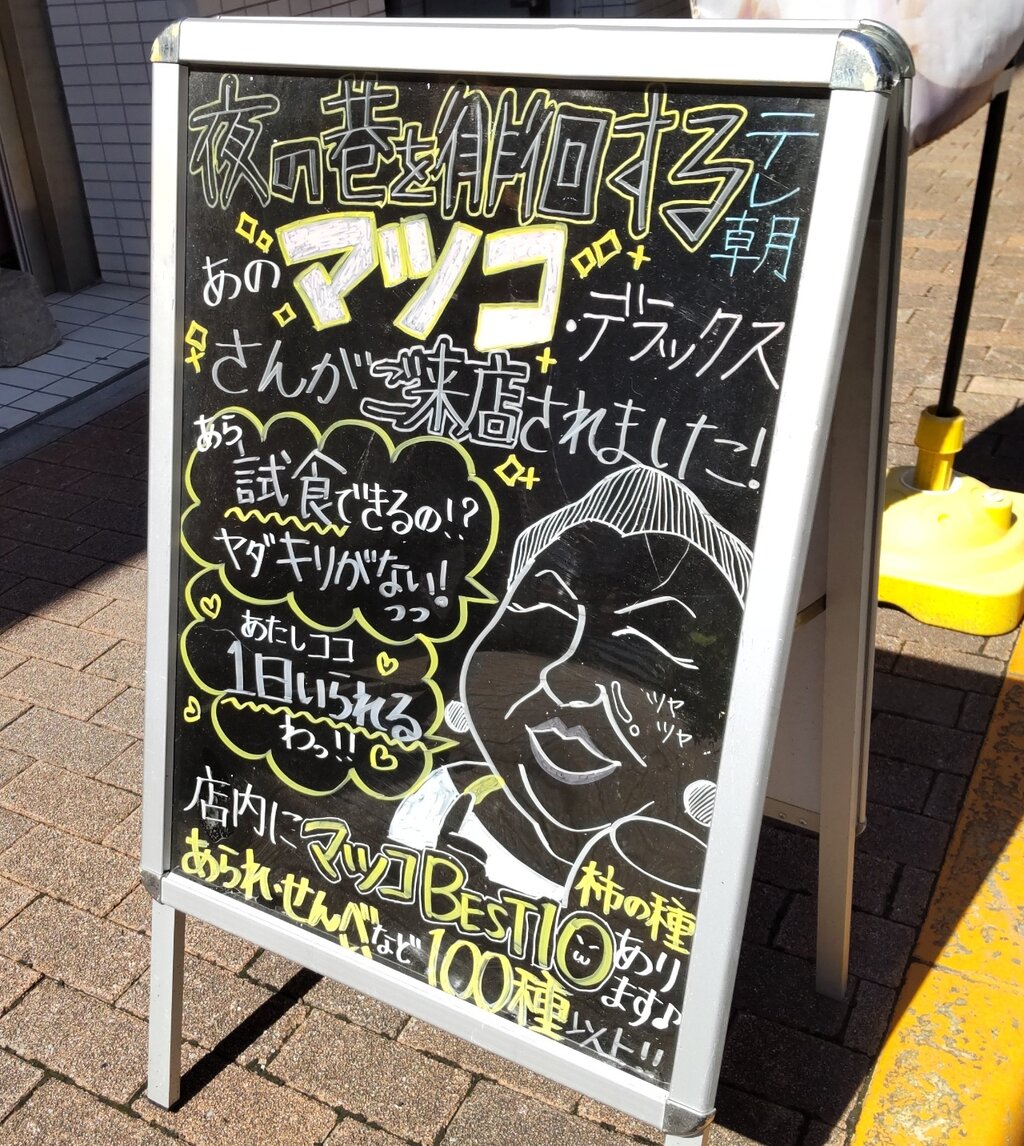 夜の巷を徘徊する
テレ朝
あの
マツコ
・デラックス
さんがご来店されました!
あら
試食できるの!?
ヤダキリがない!
っっ
あたしココ
1日いられる
わっ!!
ツヤ
ツヤ
店内にマツコBEST10
あります♪
柿の種
あられ・せんべいなど100種以上!!